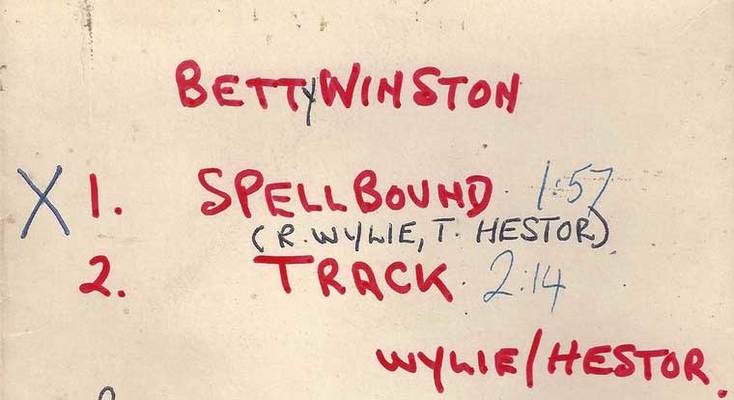 BETTY WINSTON
X 1. SPELLBOUND 1:57
(R. WYLIE, T. HESTOR)
2. TRACK 2:14
WYLIE/HESTOR.